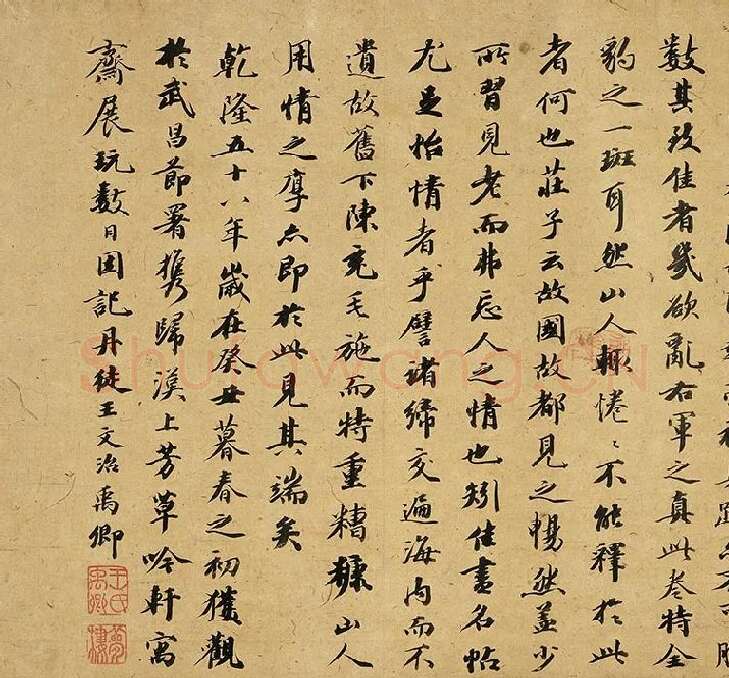 數其致佳者幾欲亂右軍之真此卷特全
豹之一斑耳然山人輒惓〻不能釋於此
者何也莊子云故國故都見之暢然蓋少
所習見老而弗忘人之情也矧佳畫名帖
尤足怡情者乎譬諸締交遍海内而不
遺故舊下陳充毛施而特重糟糠山人
用情之厚亦即於此見其端矣
乾隆五十八年歲在癸丑暮春之初獲觀
於武昌節署攜歸漢上芳草吟軒寓
齋展玩數日因記丹徒王文治禹卿
王氏禹卿
夢樓
Shufawang.CN